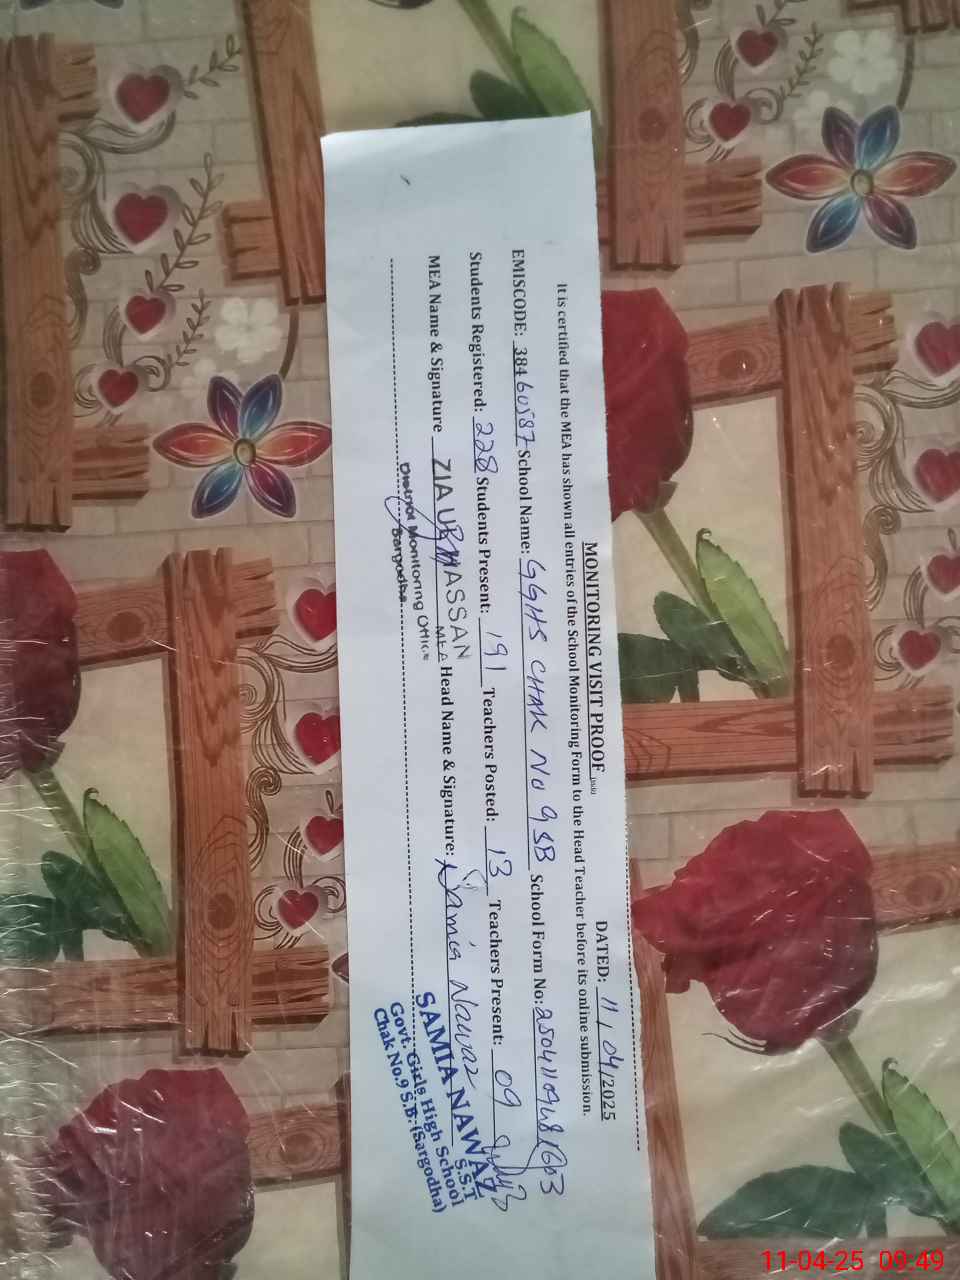 MONITORING VISIT PROOF DATED: 11/04/2025
It is certified that the MEA has shown all entries of the School Monitoring Form to the Head Teacher before its online submission.
EMISCODE: 38460587 School Name: GGHS CHAK NO 9SB School Form No:
Students Registered: 228 Students Present: 191 Teachers Posted: 13 Teachers Present: 09
MEA Name & Signature ZIA UR HASSAN MEA Head Name & Signature: Samia Nawaz
District Monitoring Office
Sargodha
SAMIA NAWAZ
S.S.T
Govt. Girls High School
Chak No.9 S.B. (Sargodha)
11-04-25 09:49